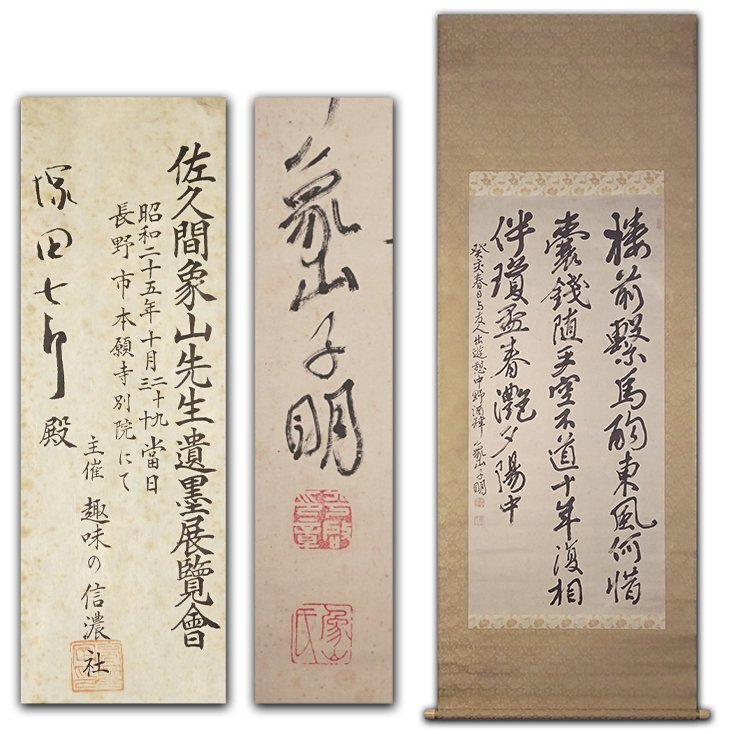 佐久間象山先生遺墨展覽會
昭和二十五年十月二十九三十當日
長野市本願寺別院にて
主催 趣味の信濃社
塚田七郎殿
象山子明
象山氏
楼前繋馬酌東風何惜
嚢錢随手空不道十年復相
伴瓊盃春灔夕陽中
癸亥春日与友人出遊憩中野酒肆 象山子明